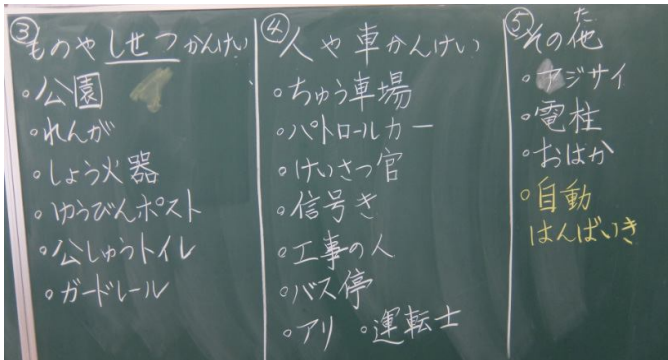 ③ものやしせつかんけい
・公園
・れんが
・しょう火器
・ゆうびんポスト
・公しゅうトイレ
・ガードレール
④人や車かんけい
・ちゅう車場
・パトロールカー
・けいさつ官
・信号き
・工事の人
・バス停
・アリ ・運転士
⑤その他
た
・アジサイ
・電柱
・おはか
・自動
はんばいき